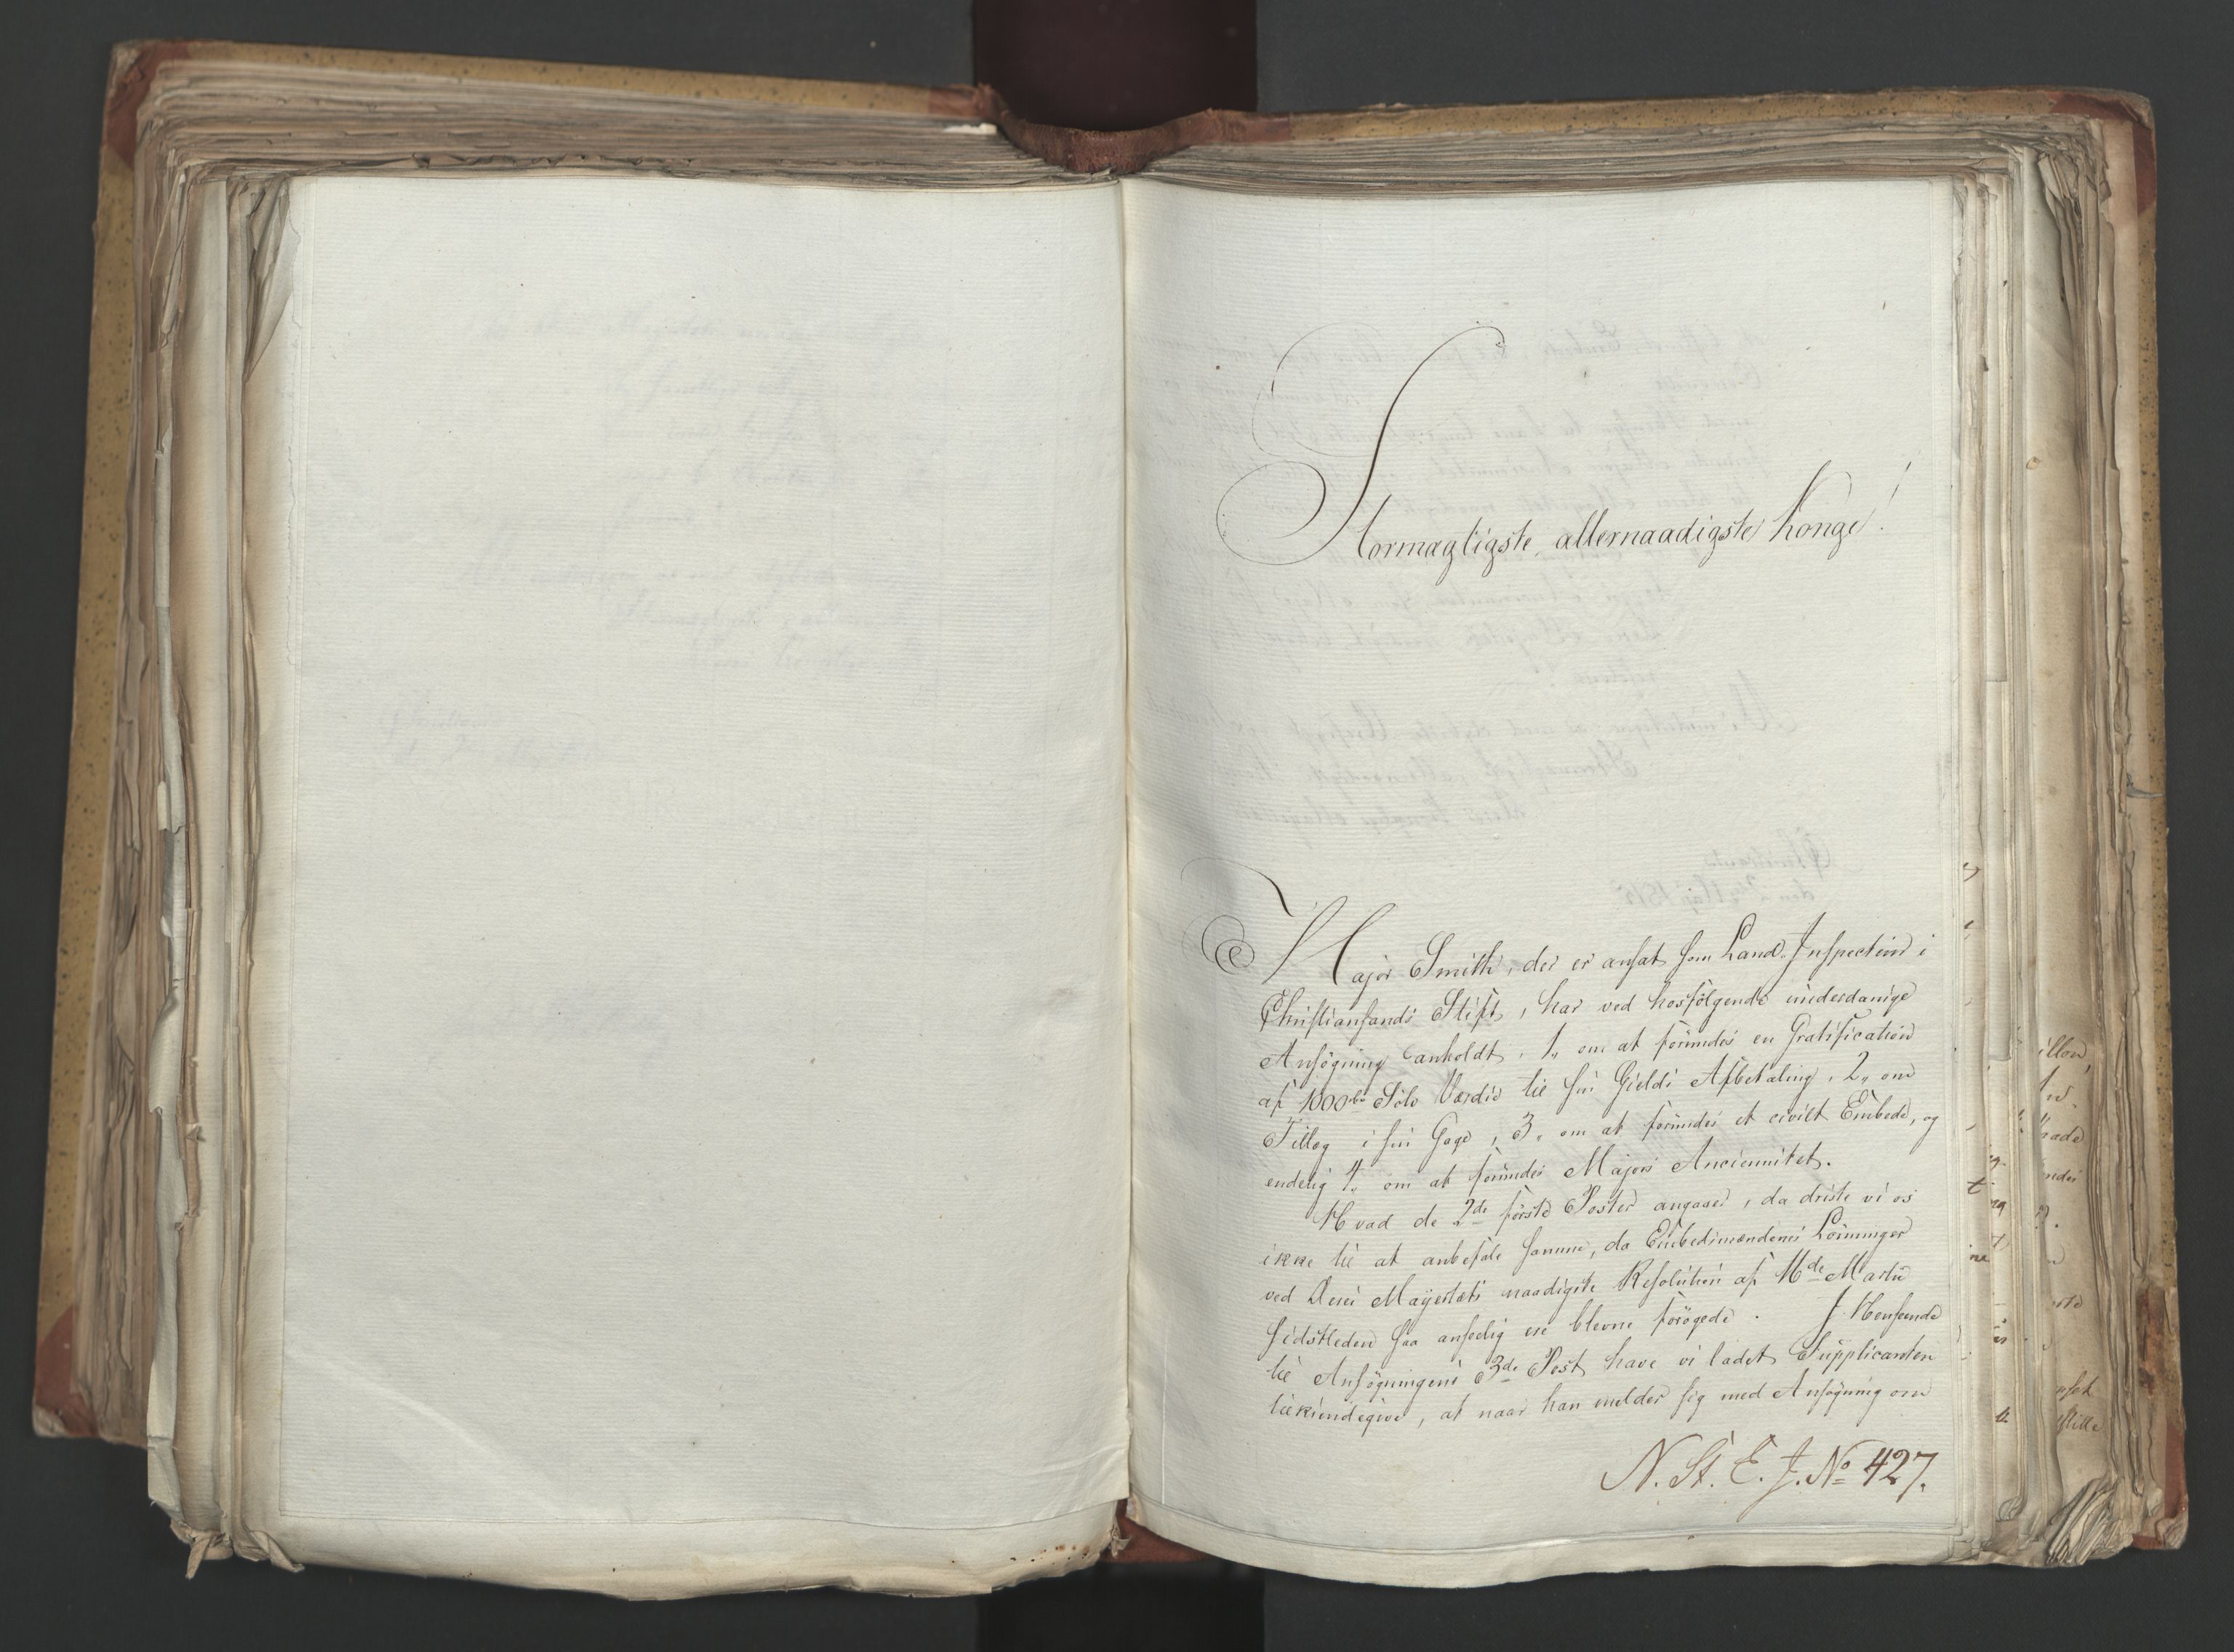 Stormægtigste, allernaadigste Konge!
Major Smith, der er ansat som Land-Inspecteur i
Christiansands Stift, har ved hosfölgende underdanige
Ansögning anholdt, 1,, om at forundes en Gratification
af 1000 Sölv Værdie til sin Gields Afbetaling, 2,, om
Tillæg i sin Gage, 3,, om at forundes et civilt Embede, og
endelig 4,, om at forundes Majors Anciennitet.
Hvad de 2de förste Poster angaaer, da driste vi os
ikke til at anbefale samme, da Embedsmændenes Lönninger
ved Deres Majestæts naadigste Resolution af 16de Martii
sidstleden saa anseelig ere blevne forögede. I Henseende
til Ansögningens 3de Post have vi ladet Supplicanten
tilkiendegive, at naar han melder sig med Ansögning om
N. St. E. J. No 427.